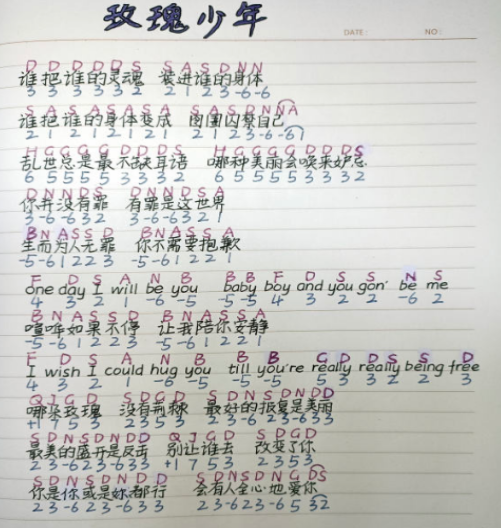 玫瑰少年
DATE: NO:
D D D D D S S A S D N N
谁把谁的灵魂 装进谁的身体
3 3 3 3 3 2 2 1 2 3 -6 -6
S A S A S A S A S A S D N N A
谁把谁的身体变成 囹圄囚禁自己
2 1 2 1 2 1 2 1 2 1 2 3 -6 -6 1
H G G G G D D D S G G G G G D D D S
乱世总是最不缺耳语 哪种美丽会唤来妒忌
6 5 5 5 5 3 3 3 2 6 5 5 5 5 3 3 3 2
D N N D S D N N D S A
你并没有罪 有罪是这世界
3 -6 -6 3 2 3 -6 -6 3 2 1
B N A S S D B N A S S A
生而为人无罪 你不需要抱歉
-5 -6 1 2 2 3 -5 -6 1 2 2 1
F D S A N B B B F D S S N S
one day I will be you baby boy and you gon' be me
4 3 2 1 -6 -5 -5 -5 4 3 2 2 -6 2
B N A S S D B N A S S A
喧哗如果不停 让我陪你安静
-5 -6 1 2 2 3 -5 -6 1 2 2 1
F D S A N B B B G D D S S D
I wish I could hug you till you're really really being free
4 3 2 1 -6 -5 -5 -5 5 3 3 2 2 3
Q J G D S D G D S D N S D N D D
哪朵玫瑰 没有荆棘 最好的报复是美丽
+1 7 5 3 2 3 5 3 2 3 -6 2 3 -6 3 3
S D N S D N D D Q J G D S D G D
最美的盛开是反击 别让谁去 改变了你
2 3 -6 2 3 -6 3 3 +1 7 5 3 2 3 5 3
S D N S D N D D S D N S D N G D S
你是你或是妳都行 会有人全心地爱你
2 3 -6 2 3 -6 3 3 2 3 -6 2 3 -6 5 3 2